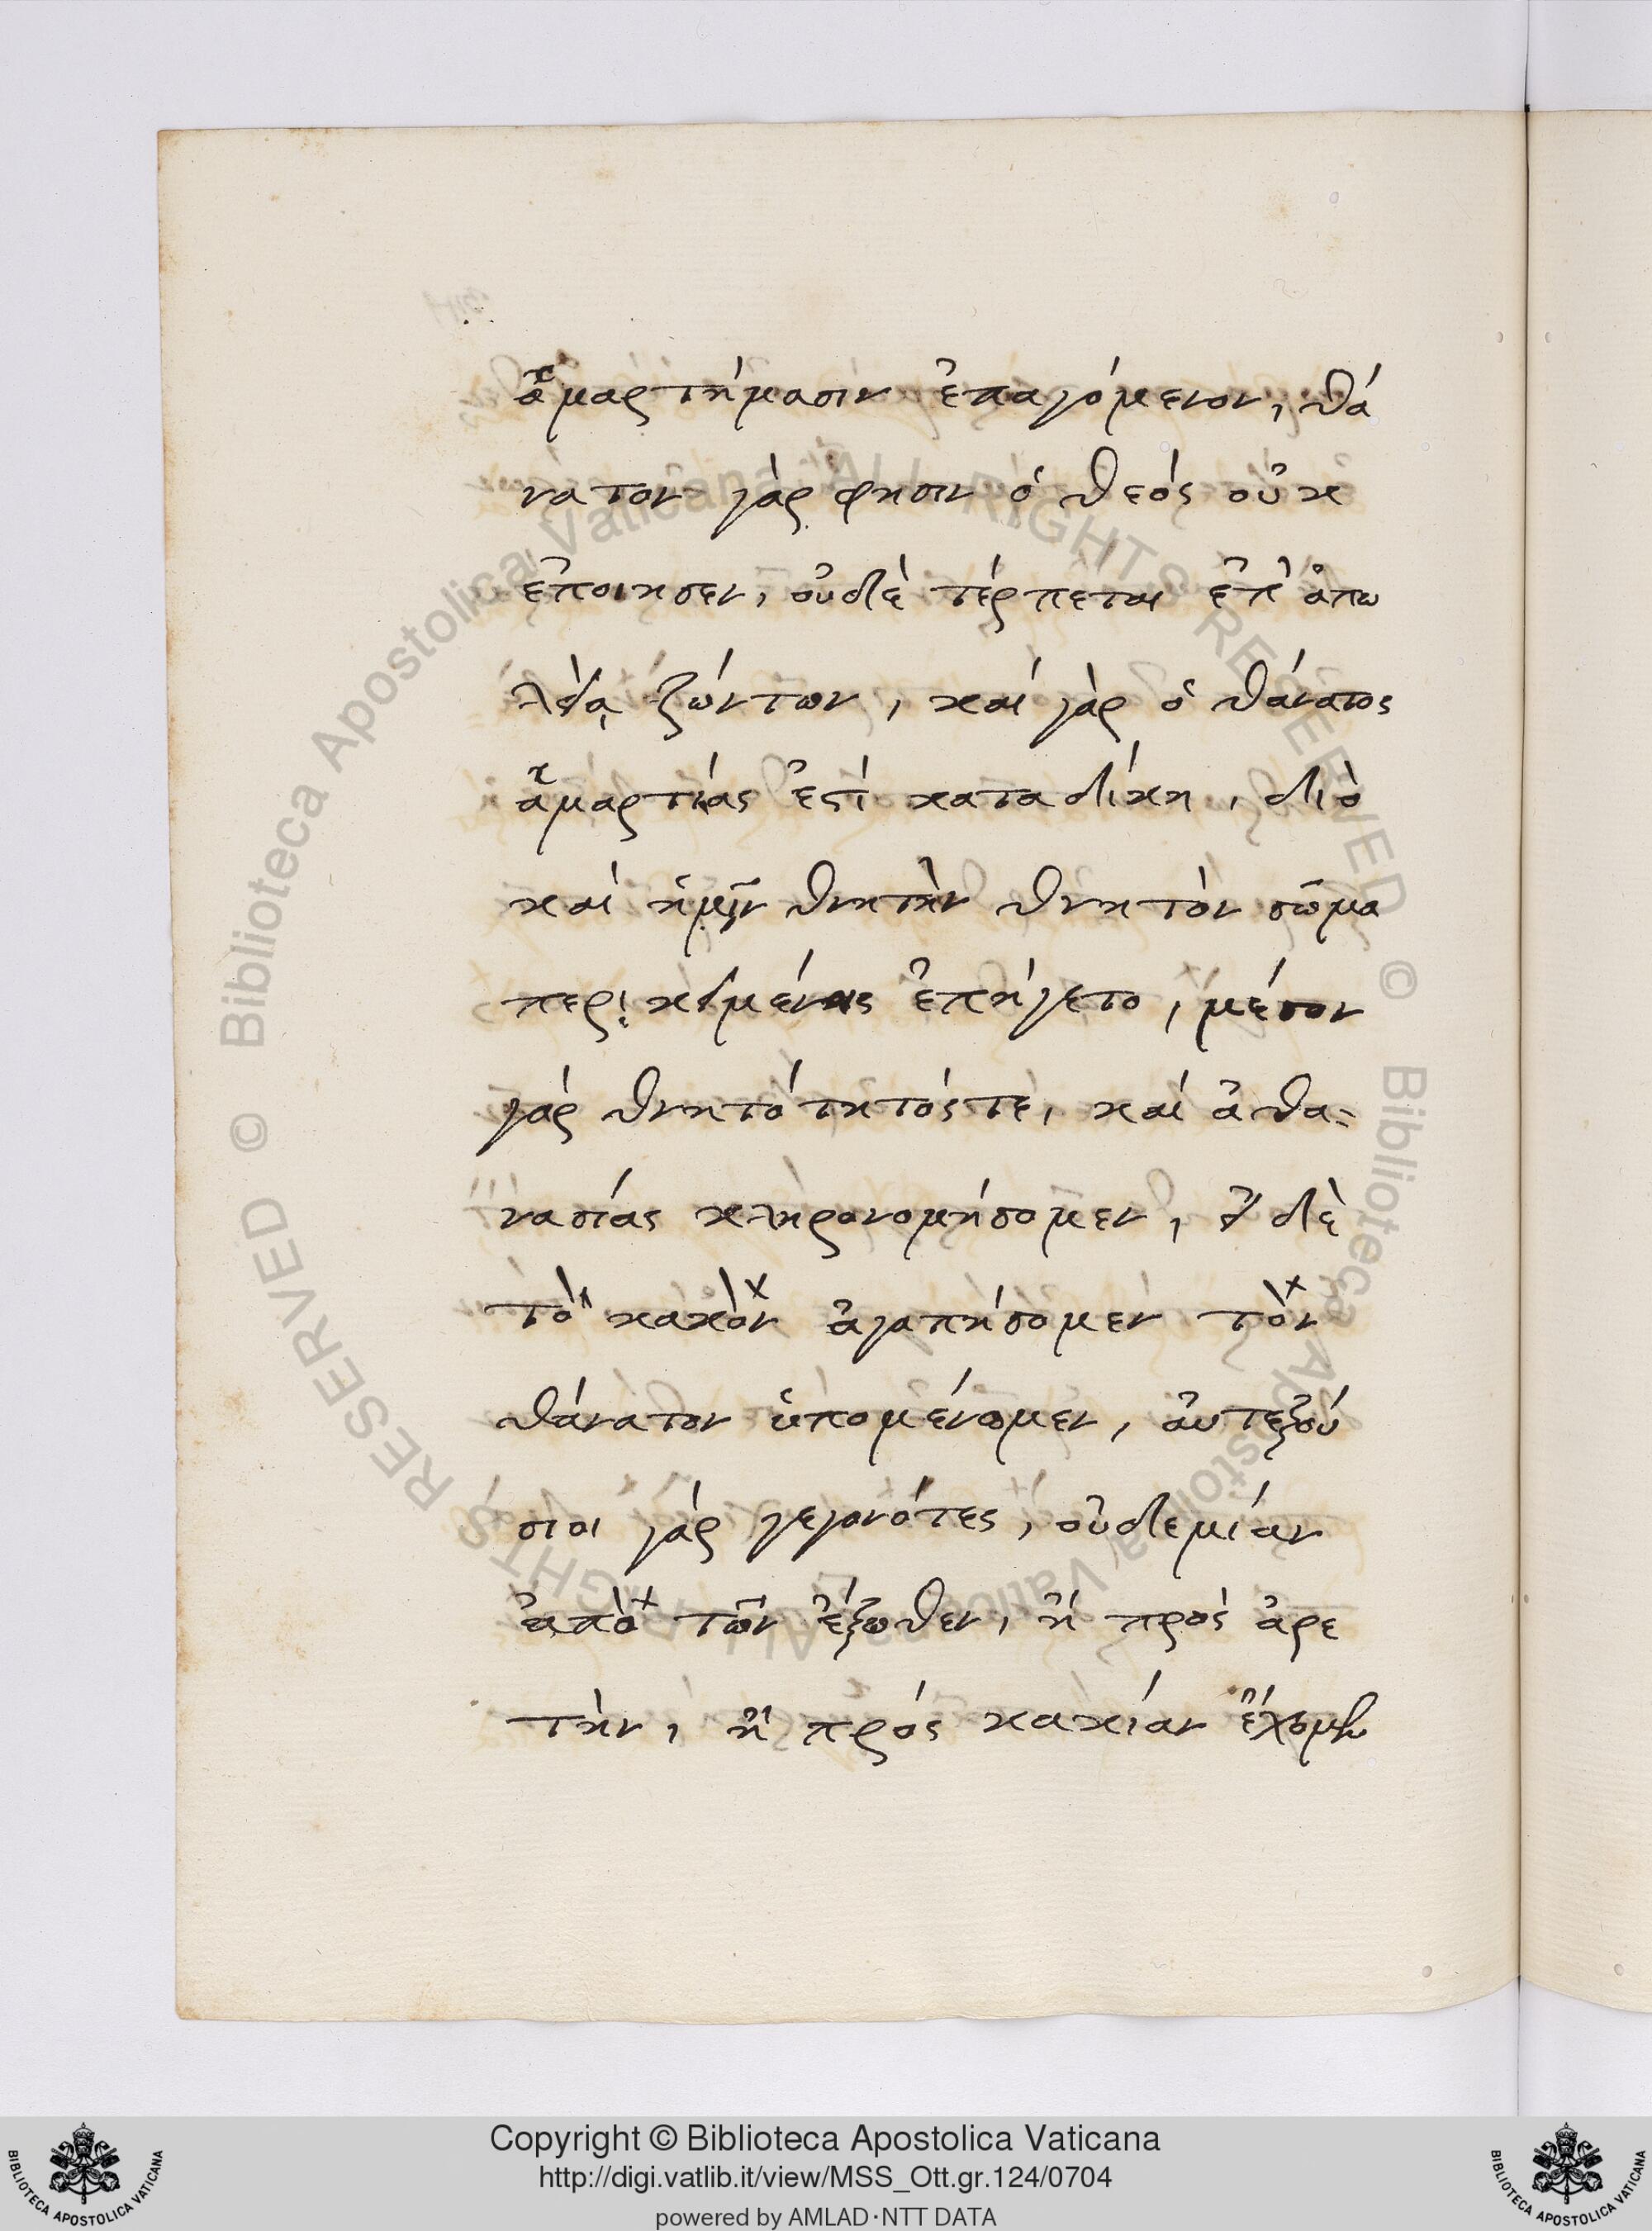 ἁμαρτήμασιν ἐπαγόμενον, θά
νατον γὰρ φησιν ὁ θεός οὐκ
ἐποιησεν, οὐδὲ τέρπεται ἐπ' ἀπω
λείᾳ ζώντων, καί γὰρ ὁ θάνατος
ἁμαρτίας ἐστί καταδίκη, διὸ
καί ἡμῖν θνητὴν θνητὸν σῶμα
περικειμένοις ἐπήγετο, μέσον
γάρ θνητότητός τε, καί ἀθα-
νασίας κληρονομήσομεν, εἰ δὲ
τὸ κακὸν ἀγαπήσομεν τὸν
θάνατον ὑπομένομεν, αὐτεξού
σιοι γάρ γεγονότες, οὐδεμίαν
ἀπὸ τῶν ἔξωθεν, ἢ πρὸς ἀρε
τὴν, ἢ πρός κακίαν ἔχομεν
© Biblioteca Apostolica Vaticana ALL RIGHTS RESERVED © Biblioteca Apostolica Vaticana ALL RIGHTS RESERVED
Copyright © Biblioteca Apostolica Vaticana
http://digi.vatlib.it/view/MSS_Ott.gr.124/0704
powered by AMLAD·NTT DATA
BIBLIOTECA APOSTOLICA VATICANA
BIBLIOTECA APOSTOLICA VATICANA